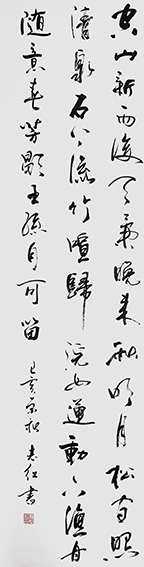 空山新雨後天氣晚來秋明月松间照
清泉石上流竹喧歸浣女蓮動下漁舟
随意春芳歇王孫自可留
己亥 和 志红書